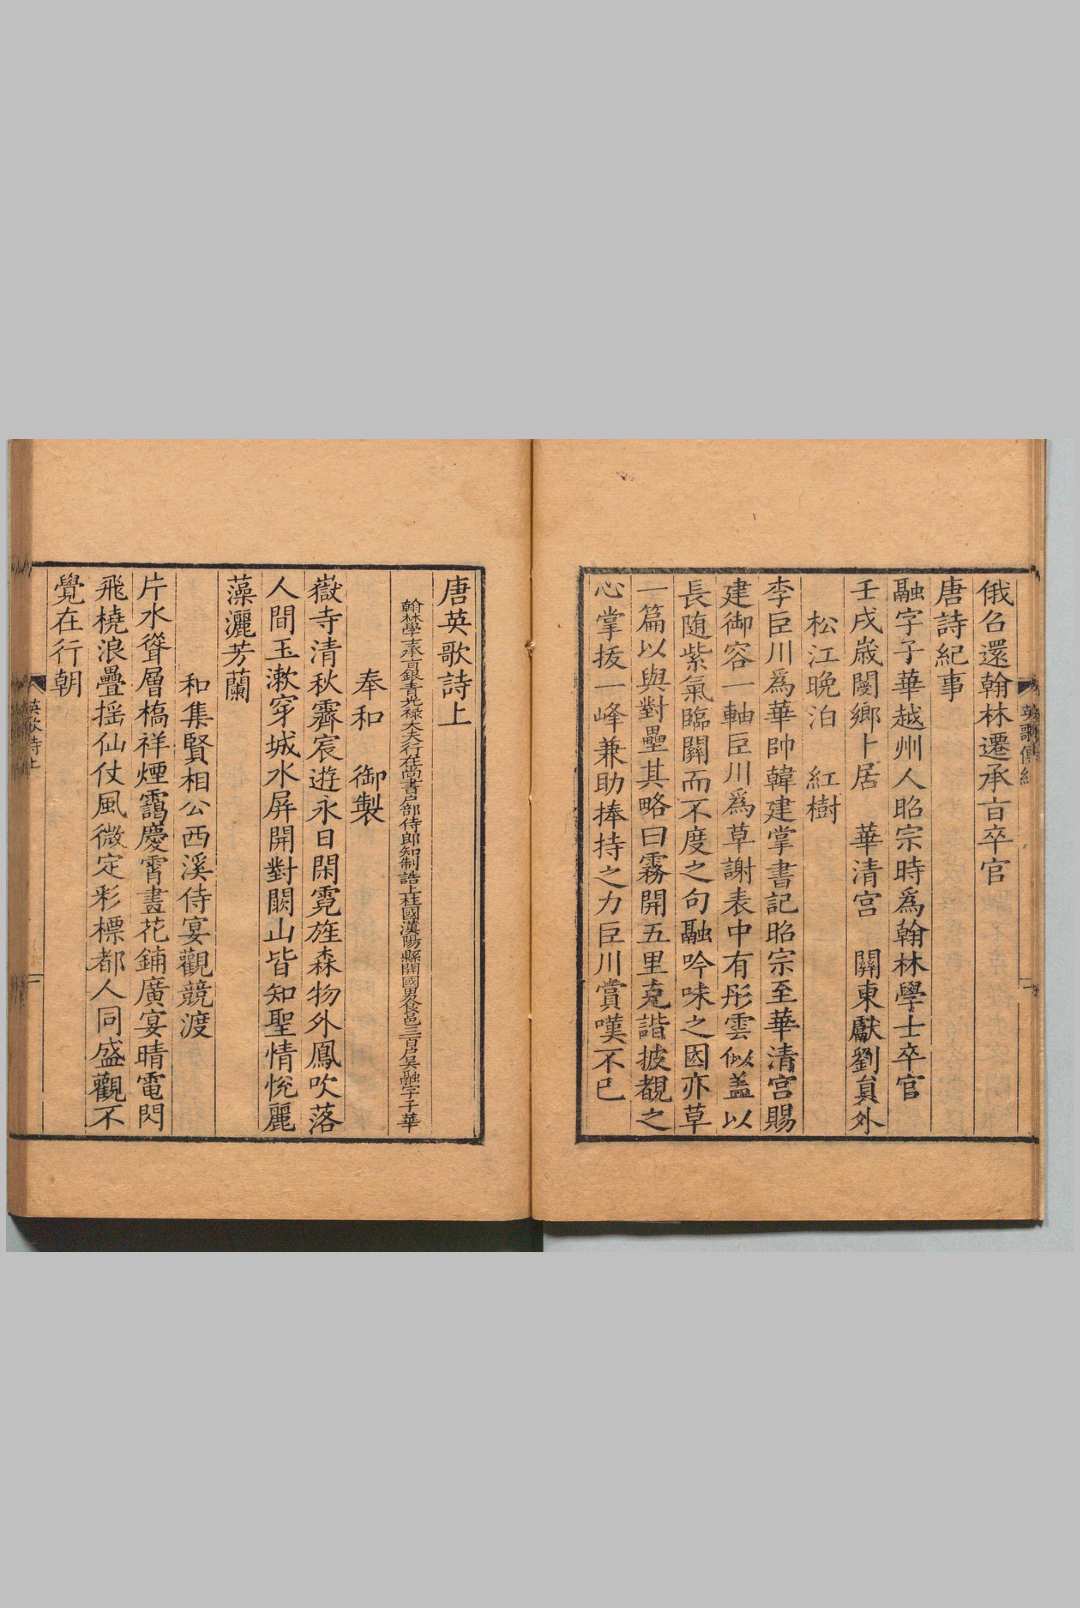 俄召還翰林遷承旨卒官
唐詩紀事
融字子華越州人昭宗時爲翰林學士卒官
壬戌歲閿鄉卜居　華清宮　關東獻劉員外
松江晚泊　紅樹
李巨川爲華帥韓建掌書記昭宗至華清宮賜
建御容一軸巨川爲草謝表中有彤雲似蓋以
長随紫氣臨關而不度之句融吟味之因亦草
一篇以與對壘其略曰霧開五里克諧披覩之
心掌拔一峰兼助捧持之力巨川賞嘆不已
英歌傳紀
一
唐英歌詩上
翰林學士承旨銀青光祿大夫行在尚書户部侍郎知制誥上柱國漢陽縣開國男食邑三百户吳融字子華
奉和　御製
嶽寺清秋霽宸遊永日閑霓旌森物外鳳吹落
人間玉漱穿城水屏開對闕山皆知聖情悅麗
藻灑芳蘭
和集賢相公西溪侍宴觀競渡
片水聳層橋祥煙靄慶霄晝花鋪廣宴晴電閃
飛橈浪疊揺仙仗風微定彩標都人同盛觀不
覺在行朝
英歌詩上
一